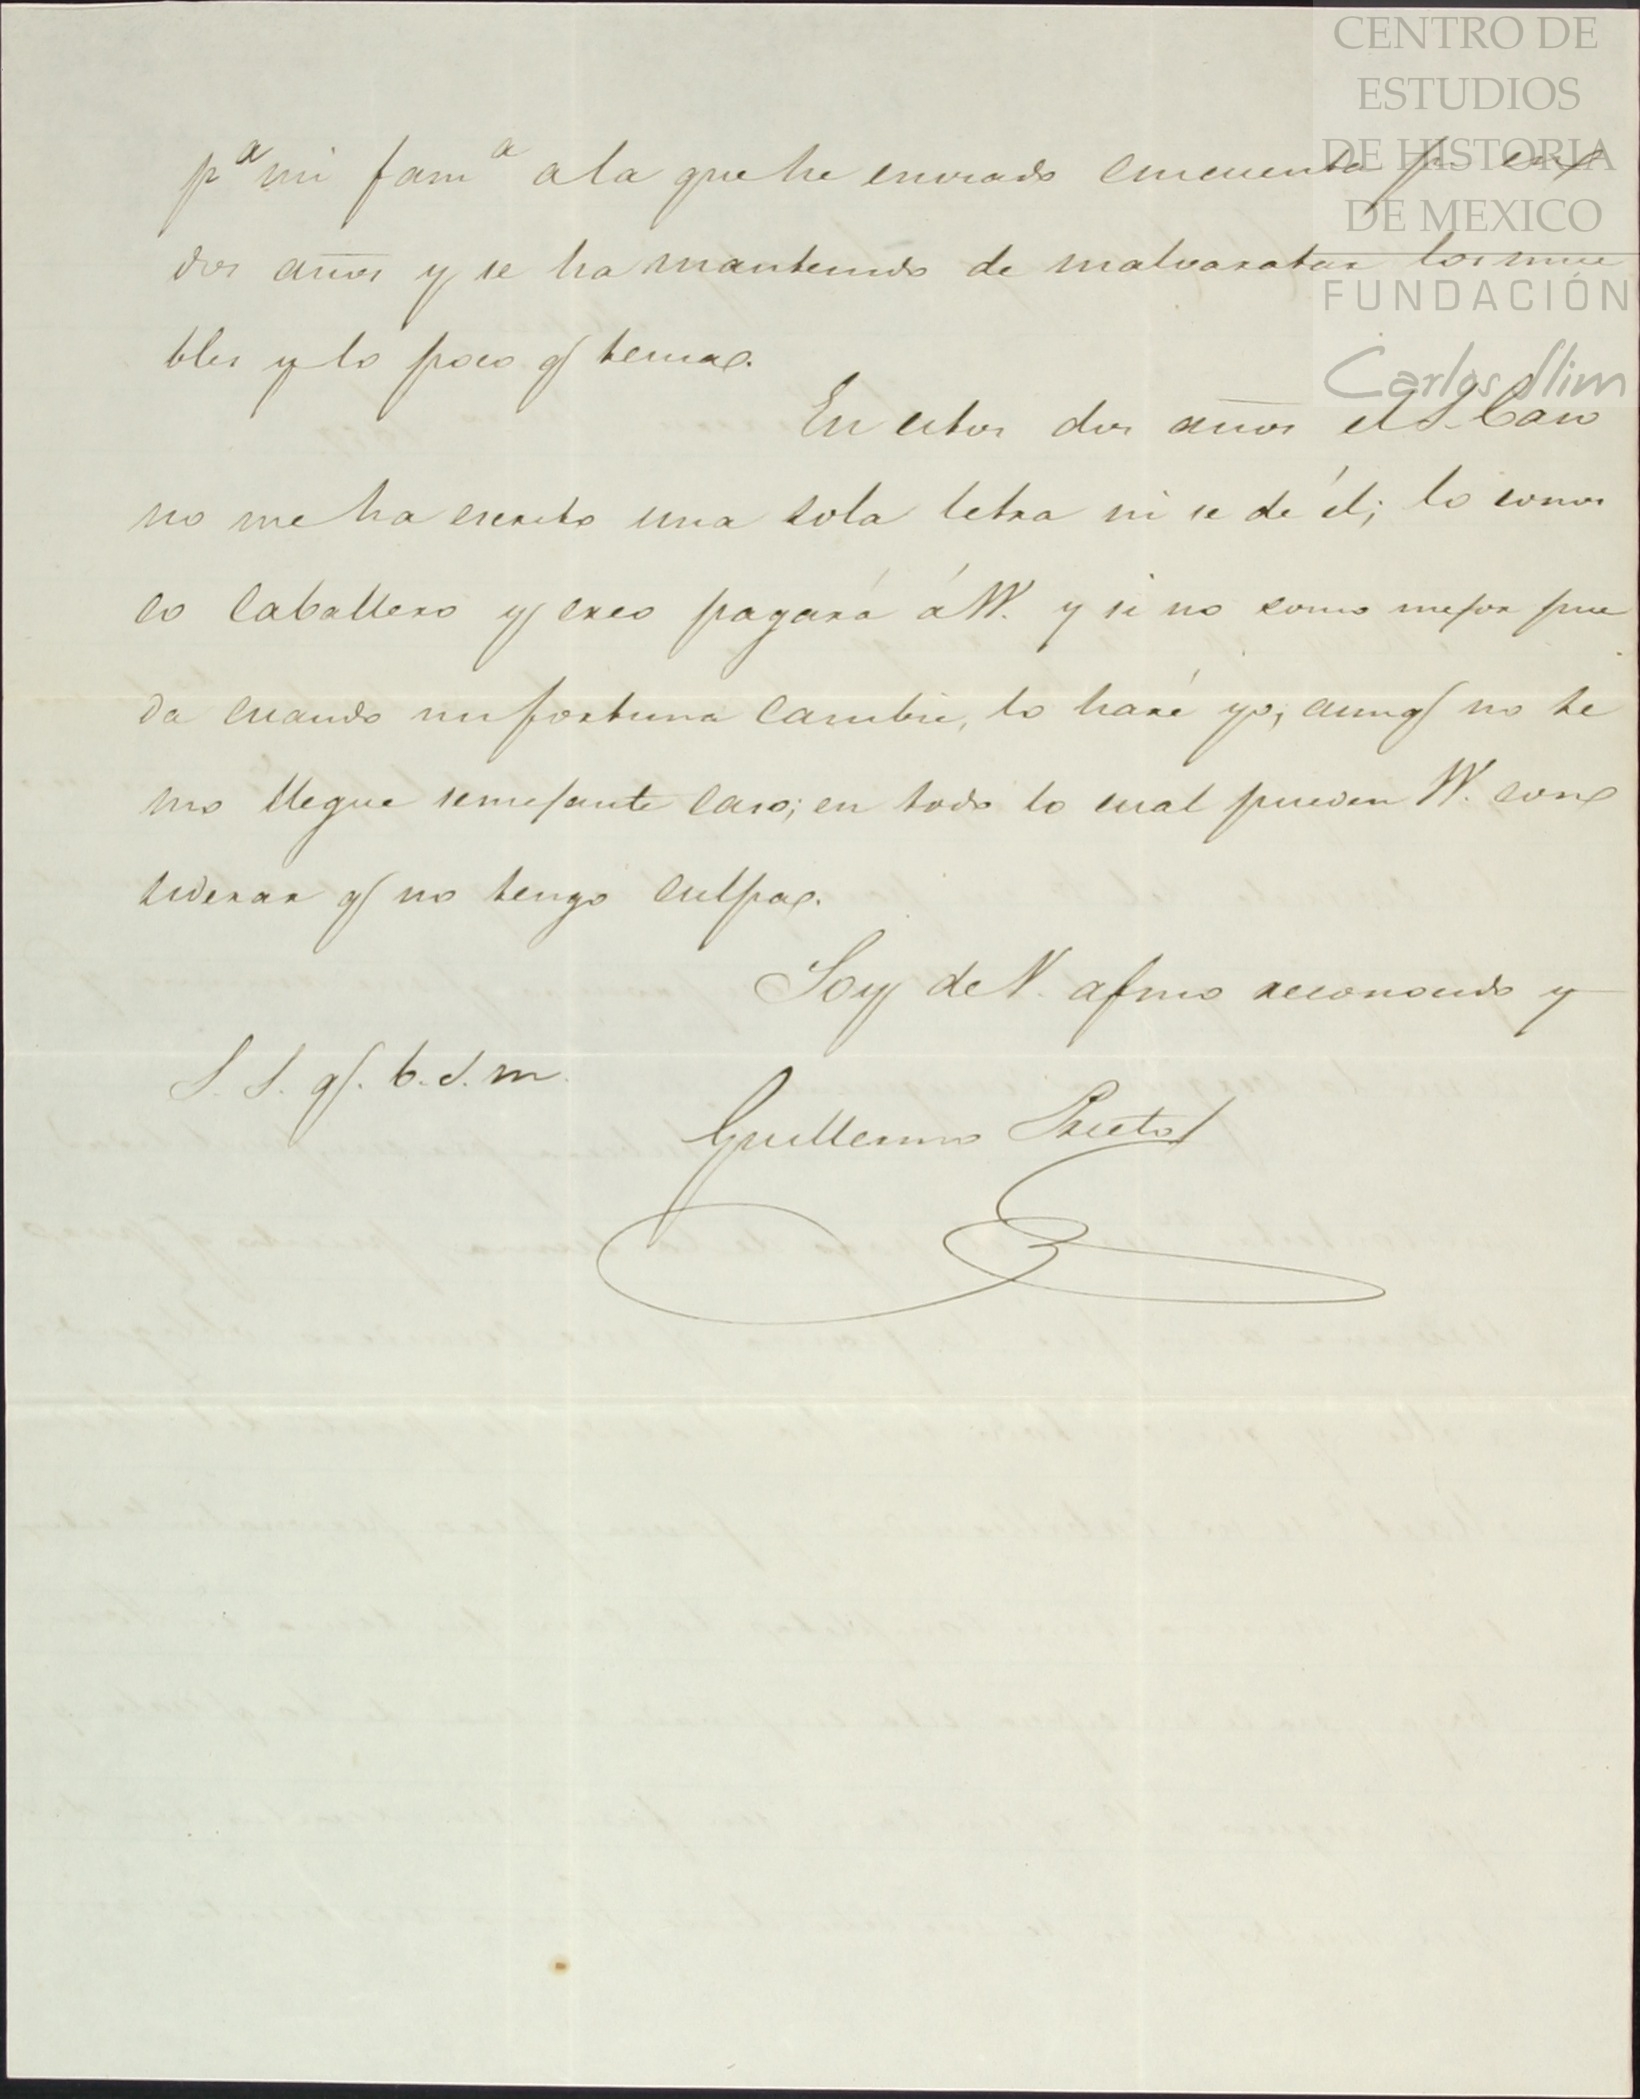 CENTRO DE
ESTUDIOS
DE HISTORIA
DE MEXICO
FUNDACIÓN
Carlos Slim
pª mi famª a la que he enviado cincuenta p. en
dos años y se ha mantenido de malvaratar los mue
bles y lo poco q tenia.
En estos dos años el S. Caso
no me ha escrito una sola letra ni se de él; lo conos
co caballero y creo pagará á VV. y si no como mejor pue
da cuando mi fortuna cambie, lo haré yo, aunq no te
mo llegue semejante caso; en todo lo cual pueden VV. con
siderar q no tengo culpa.
Soy de V. afmo reconocido y
S. S. q. b. s. m.
Guillermo Prieto